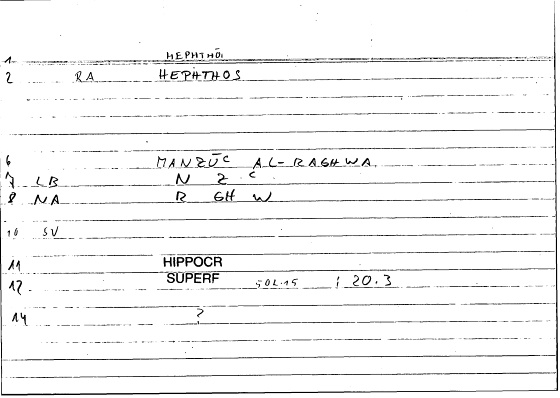 1 HEPHTHŌ
2 RA HEPHTHOS
6 MANZŪC AL-RAGHWA
7 LB N Z C
8 NA R GH W
10 SV
11 HIPPOCR
12 SUPERF 50L.15 ; 20.3
14 ?